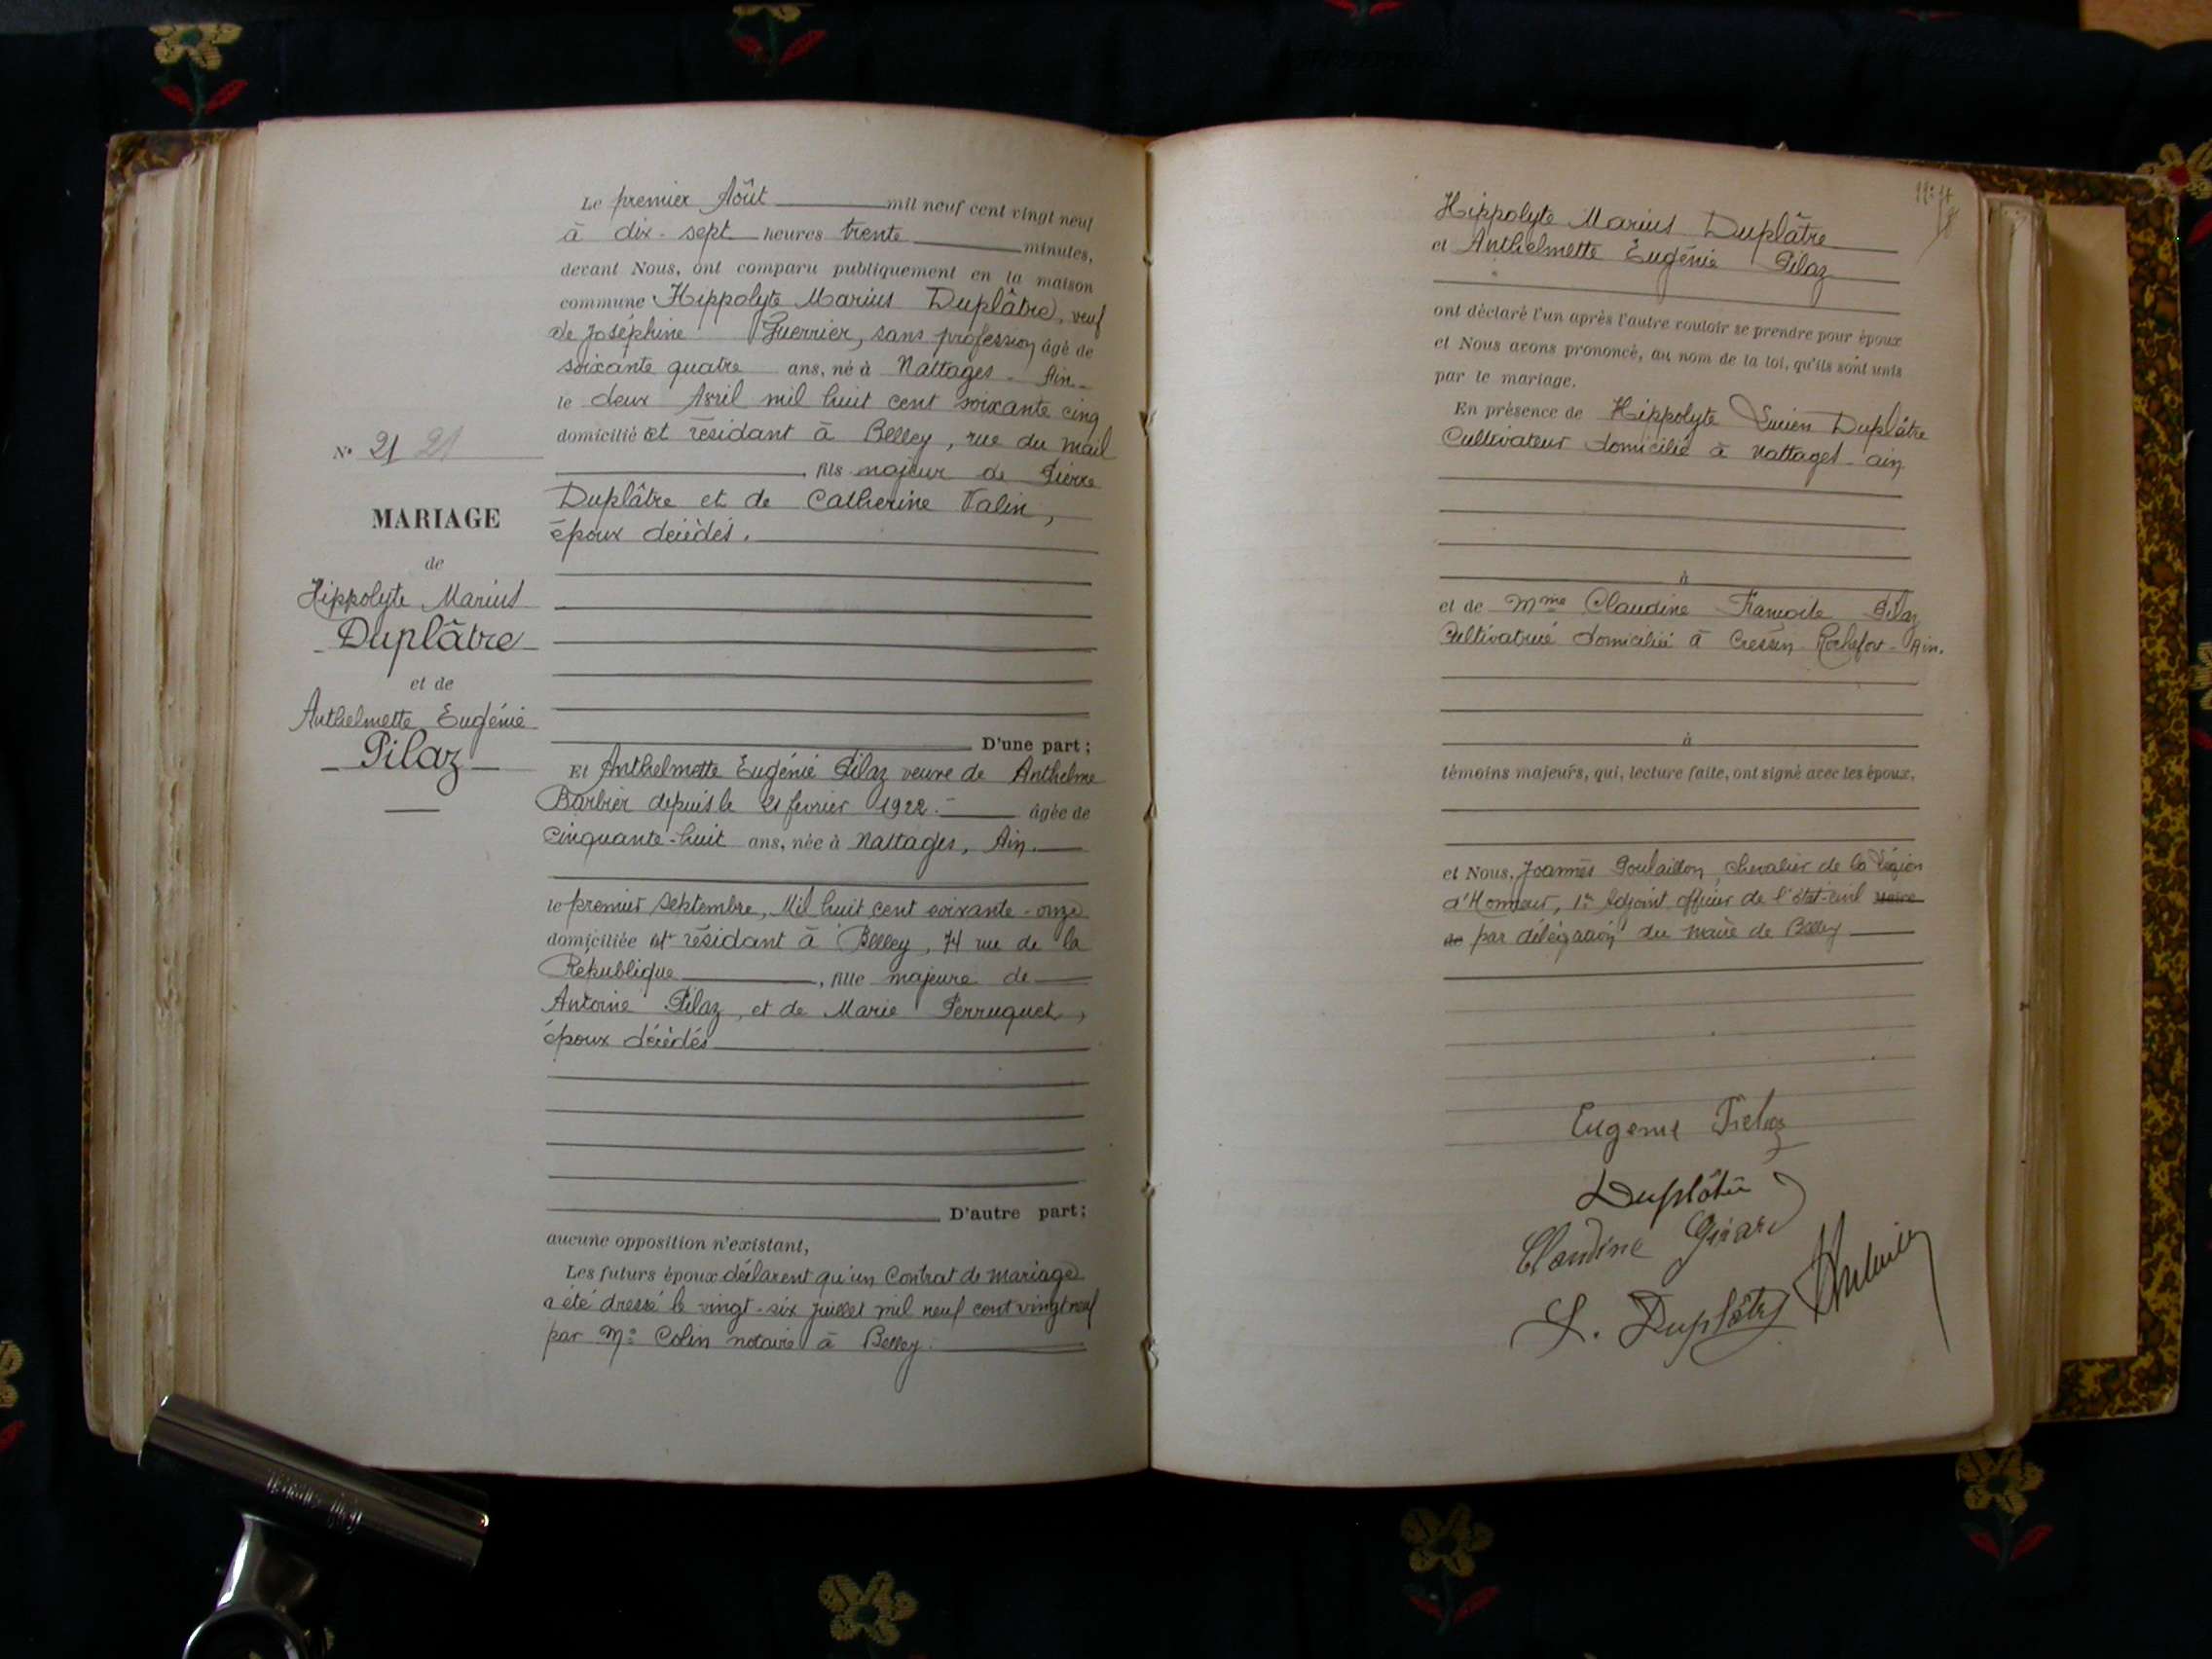 N° 21 21
MARIAGE
de
Hippolyte Marius
Duplâtre
et de
Anthelmette Eugénie
Pilaz
Le premier Août mil neuf cent vingt neuf
à dix-sept heures trente minutes,
devant Nous, ont comparu publiquement en la maison
commune Hippolyte Marius Duplâtre, veuf
de Joséphine Guerrier, sans profession âgé de
soixante quatre ans, né à Nattages - Ain -
le deux Avril mil huit cent soixante cinq
domicilié et résidant à Belley, rue du Mail
, fils majeur de Pierre
Duplâtre et de Catherine Valin,
époux décédés.
D'une part ;
Et Anthelmette Eugénie Pilaz veuve de Anthelme
Barbier depuis le 21 février 1922. âgée de
cinquante-huit ans, née à Nattages, Ain.
le premier septembre, Mil huit cent soixante-onze
domiciliée et résidant à Belley, 74 rue de la
République, fille majeure de
Antoine Pilaz, et de Marie Perruquet,
époux décédés
D'autre part ;
aucune opposition n'existant,
Les futurs époux déclarent qu'un Contrat de mariage
a été dressé le vingt-six juillet mil neuf cent vingt neuf
par Me Colin notaire à Belley.
Hippolyte Marius Duplâtre
et Anthelmette Eugénie Pilaz
ont déclaré l'un après l'autre vouloir se prendre pour époux
et Nous avons prononcé, au nom de la loi, qu'ils sont unis
par le mariage.
En présence de Hippolyte Lucien Duplâtre
Cultivateur domicilié à Nattages - ain
à
et de Mme Claudine Françoise Pilaz
Cultivatrice domiciliée à Cressin Rochefort - Ain.
à
témoins majeurs, qui, lecture faite, ont signé avec les époux,
et Nous, Joannès Goulaillon, chevalier de la Légion
d'Honneur, 1er Adjoint officier de l'état-civil Maire
de par délégation du Maire de Belley
Eugenie Pielaz
Duplâtre
Claudine Girard
L. Duplâtre